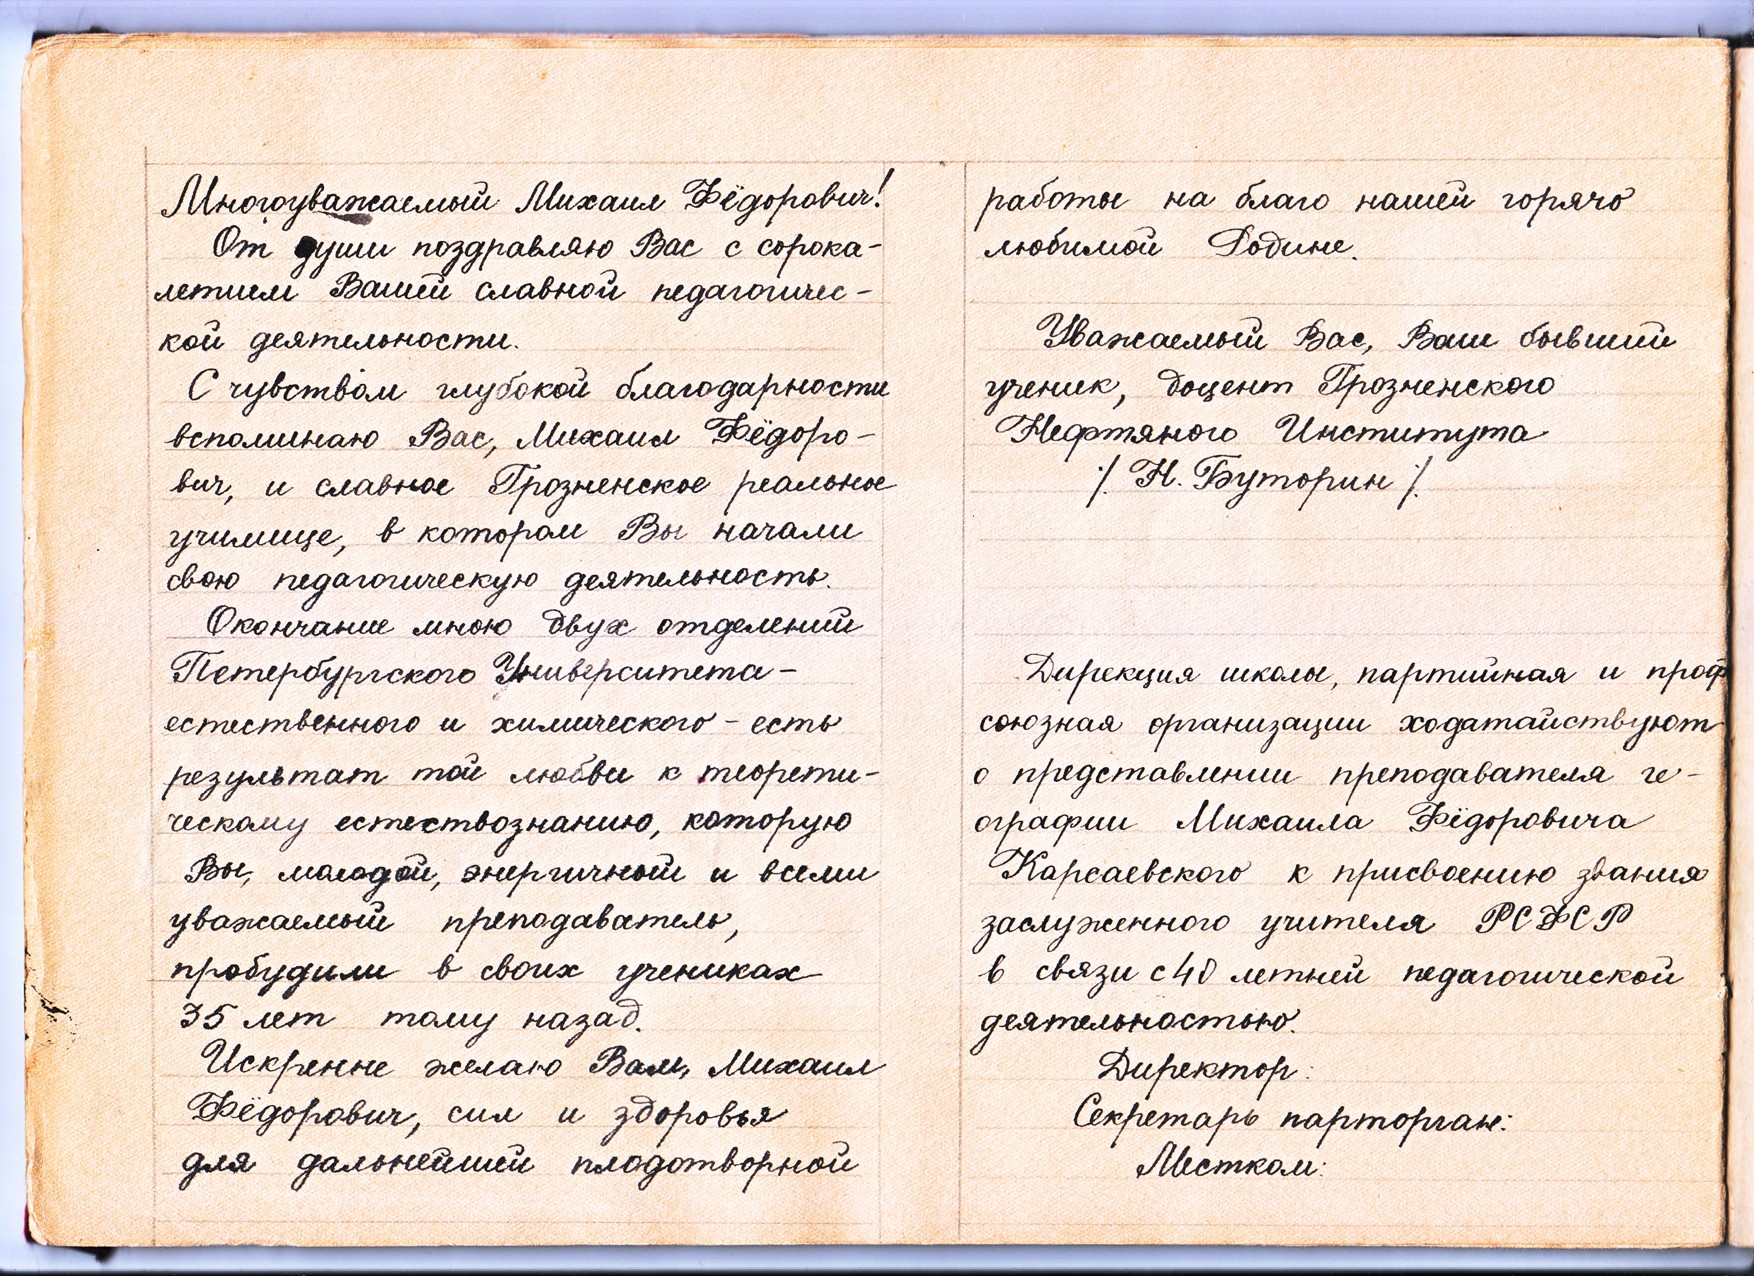 Многоуважаемый Михаил Фёдорович!
От души поздравляю Вас с сорока-
летием Вашей славной педагогичес-
кой деятельности.
С чувством глубокой благодарности
вспоминаю Вас, Михаил Фёдоро-
вич, и славное Грозненское реальное
училище, в котором Вы начали
свою педагогическую деятельность.
Окончание мною двух отделений
Петербургского Университета -
естественного и химического - есть
результат той любви к теорети-
ческому естествознанию, которую
Вы, молодой, энергичный и всеми
уважаемый преподаватель,
пробудили в своих учениках
35 лет тому назад.
Искренне желаю Вам, Михаил
Фёдорович, сил и здоровья
для дальнейшей плодотворной
работы на благо нашей горячо
любимой Родине.
Уважаемый Вас, Ваш бывший
ученик, доцент Грозненского
Нефтяного Института
/. Н. Буторин /.
Дирекция школы, партийная и проф
союзная организации ходатайствуют
о представлении преподавателя ге-
ографии Михаила Фёдоровича
Карсаевского к присвоению звания
заслуженного учителя РСФСР
в связи с 40 летней педагогической
деятельностью.
Директор:
Секретарь парторган:
Местком: